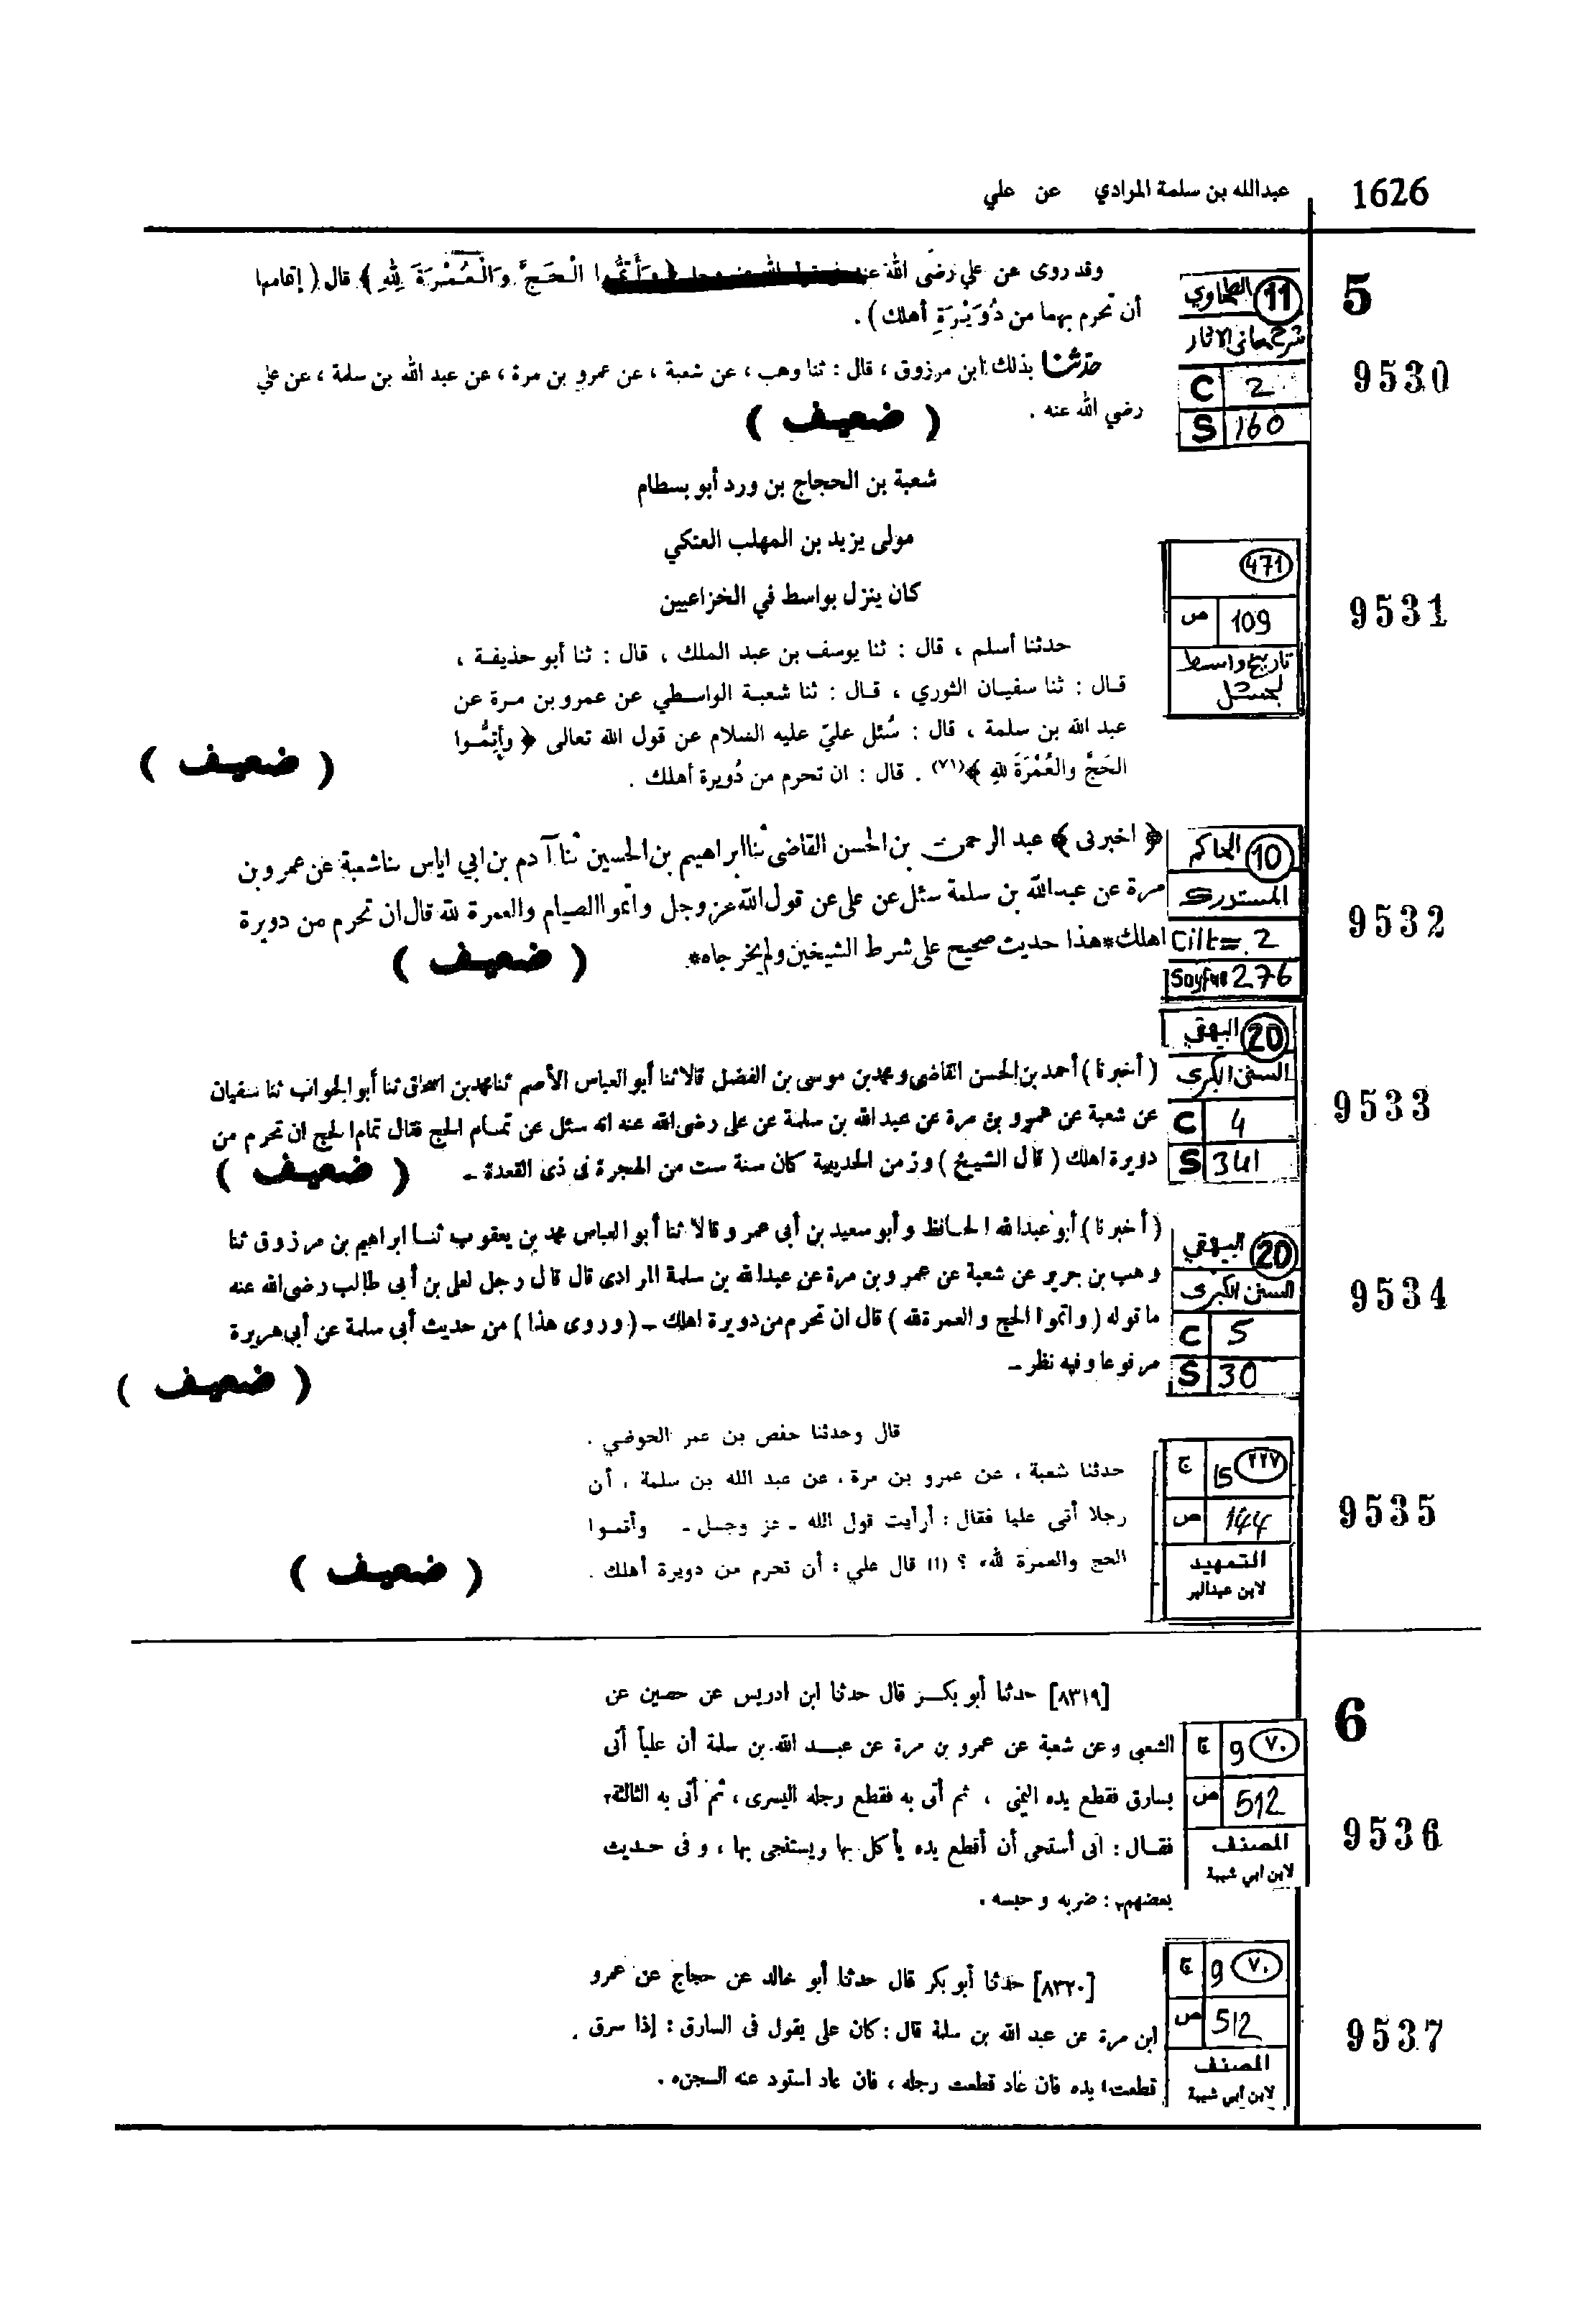 1626
عبدالله بن سلمة المرادي عن علي
5
9530
الطحاوي 11
شرح معاني الاثار
C 2
S 160
وقد روى عن علي رضي الله عنه في قول الله عز وجل ﴿ وَأَتِمُّوا الْحَجَّ وَالْعُمْرَةَ لِلَّهِ ﴾ قال ( إتمامها
أن تحرم بهما من دُوَيْرَةِ أهلك ) .
حدّثنا بذلك ابن مرزوق ، قال : ثنا وهب ، عن شعبة ، عن عمرو بن مرة ، عن عبد الله بن سلمة ، عن علي
رضي الله عنه .
( ضعيف )
9531
471
ص 109
تاريخ واسط
لبحشل
شعبة بن الحجاج بن ورد أبو بسطام
مولى يزيد بن المهلب العتكي
كان ينزل بواسط في الخزاعيين
حدثنا أسلم ، قال : ثنا يوسف بن عبد الملك ، قال : ثنا أبو حذيفة ،
قال : ثنا سفيان الثوري ، قال : ثنا شعبة الواسطي عن عمرو بن مرة عن
عبد الله بن سلمة ، قال : سُئل عليّ عليه السلام عن قول الله تعالى ﴿ وأتِمُّوا
الحَجَّ والعُمْرَةَ للهِ ﴾(٧١) . قال : ان تحرم من دُويرة أهلك .
( ضعيف )
9532
الحاكم 10
المستدرك
Cilt= 2
Sayfa 276
﴿ اخبرنى ﴾ عبد الرحمن بن الحسن القاضى ثنا ابراهيم بن الحسين ثنا آدم بن ابي اياس ثنا شعبة عن عمرو بن
مرة عن عبدالله بن سلمة سئل عن على عن قول الله عز وجل واتموا الصيام والعمرة لله قال ان تحرم من دويرة
اهلك*هذا حديث صحيح على شرط الشيخين ولم يخرجاه*
( ضعيف )
9533
البيهقي 20
السنن الكبرى
C 4
S 341
( أخبرنا ) أحمد بن الحسن القاضى ومحمد بن موسى بن الفضل قالا ثنا أبو العباس الأصم ثنا محمد بن اسحاق ثنا أبو الجواب ثنا سفيان
عن شعبة عن عمرو بن مرة عن عبدالله بن سلمة عن على رضى الله عنه انه سئل عن تمام الحج فقال تمام الحج ان تحرم من
دويرة اهلك ( قال الشيخ ) وزمن الحديبية كان سنة ست من الهجرة فى ذى القعدة ـ
( ضعيف )
9534
البيهقي 20
السنن الكبرى
C 5
S 30
( أخبرنا ) أبو عبدالله الحافظ وأبو سعيد بن أبى عمرو قالا ثنا أبو العباس محمد بن يعقوب ثنا ابراهيم بن مرزوق ثنا
وهب بن جرير عن شعبة عن عمرو بن مرة عن عبدالله بن سلمة المرادى قال قال رجل لعلى بن أبى طالب رضى الله عنه
ما قوله ( واتموا الحج والعمرة لله ) قال ان تحرم من دويرة اهلك ـ ( وروى هذا ) من حديث أبى سلمة عن أبى هريرة
مرفوعا وفيه نظر ـ
( ضعيف )
9535
ج 15 ٢٢٧
ص 144
التمهيد
لابن عبدالبر
قال وحدثنا حفص بن عمر الحوضي .
حدثنا شعبة ، عن عمرو بن مرة ، عن عبد الله بن سلمة ، أن
رجلا أتى عليا فقال : أرأيت قول الله ـ عز وجل ـ وأتموا
الحج والعمرة لله ؟ (١) قال علي : أن تحرم من دويرة أهلك .
( ضعيف )
6
9536
ج 9 ٧٠
ص 512
المصنف
لابن ابي شيبة
[٨٣١٩] حدثنا أبو بكر قال حدثنا ابن ادريس عن حصين عن
الشعبى وعن شعبة عن عمرو بن مرة عن عبد الله بن سلمة أن علياً أتى
بسارق فقطع يده اليمنى ، ثم أتى به فقطع رجله اليسرى ، ثم أتى به الثالثة
فقال : انى أستحى أن أقطع يده يأكل بها ويستنجى بها ، وفى حديث
بعضهم : ضربه وحبسه .
9537
ج 9 ٧٠
ص 512
المصنف
لابن أبي شيبة
[٨٣٢٠] حدثنا أبو بكر قال حدثنا أبو خالد عن حجاج عن عمرو
ابن مرة عن عبد الله بن سلمة قال : كان على يقول فى السارق : إذا سرق
قطعت يده فان عاد قطعت رجله ، فان عاد استودعته السجن .